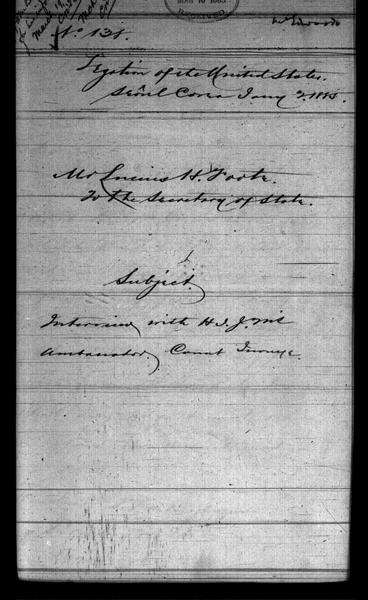 No 131.
Legation of the United States.
Seoul Corea Jany 2. 1885.
Mr Lucius H. Foote
To the Secretary of State.
Subject
Interview with H. I. J. M's
Ambassador, Count Inouye
RECEIVED